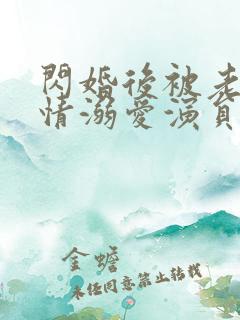 閃婚後被老
情溺愛演員
金蟾
未任同意禁止转载